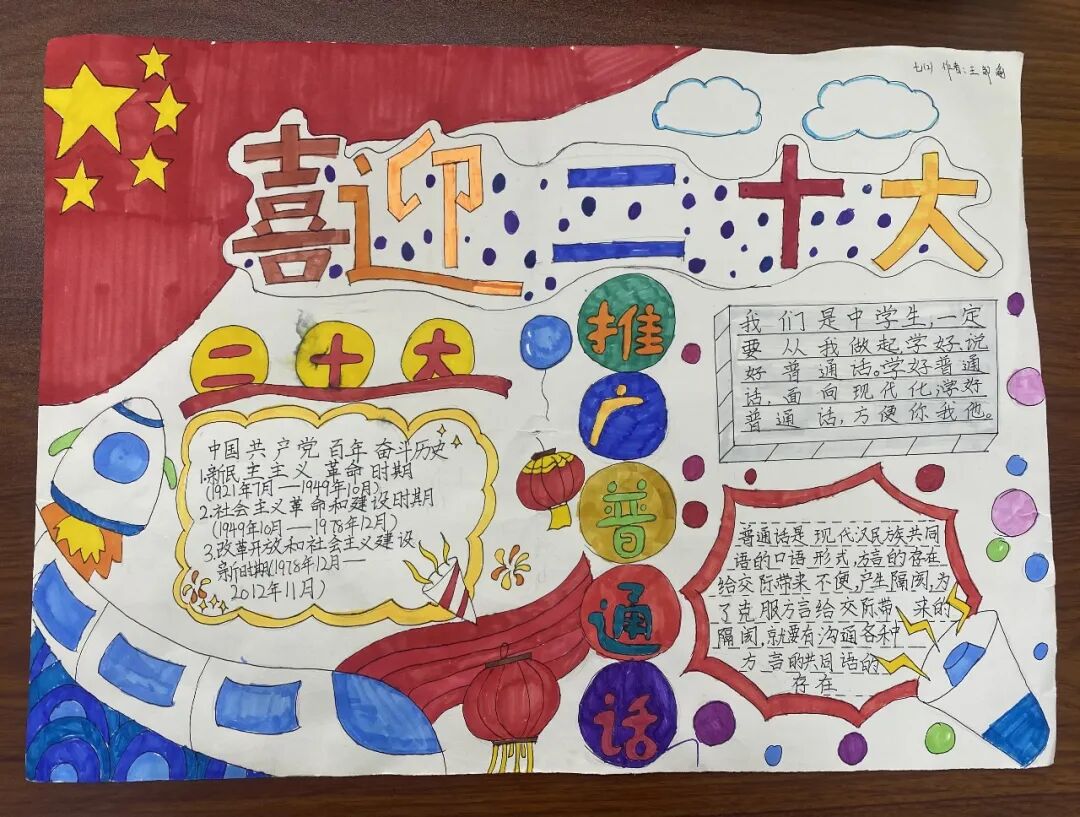 七(2) 作者:王
喜迎二十大
二十大
中国共产党百年奋斗历史
1.新民主主义革命时期
(1921年7月—1949年10月)
2.社会主义革命和建设时期
(1949年10月—1978年12月)
3.改革开放和社会主义建设
新时期(1978年12月—
2012年11月)
推
广
普
通
话
我们是中学生,一定
要从我做起学好、说
好普通话。学好普通
话,面向现代化,学好
普通话,方便你我他。
普通话是现代汉民族共同
语的口语形式,方言的存在
给交际带来不便,产生隔阂,为
了克服方言给交际带来的
隔阂,就要有沟通各种
方言的共同语的
存在